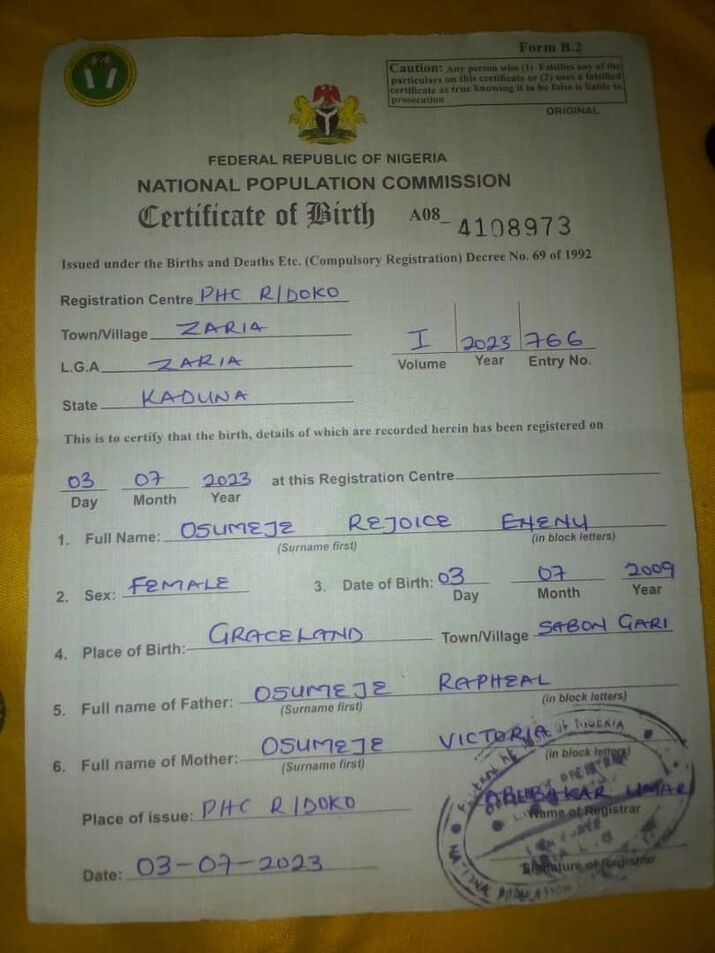 Form B.2
Caution: Any person who (1) Falsifies any of the
particulars on this certificate or (2) uses a falsified
certificate as true knowing it to be false is liable to
prosecution
ORIGINAL
FEDERAL REPUBLIC OF NIGERIA
NATIONAL POPULATION COMMISSION
Certificate of Birth A08_ 4108973
Issued under the Births and Deaths Etc. (Compulsory Registration) Decree No. 69 of 1992
Registration Centre PHC R/DOKO
Town/Village ZARIA
L.G.A ZARIA
I 2023 766
Volume Year Entry No.
State KADUNA
This is to certify that the birth, details of which are recorded herein has been registered on
03 07 2023 at this Registration Centre
Day Month Year
1. Full Name: OSUMEJE REJOICE EHENU
(Surname first) (in block letters)
2. Sex: FEMALE 3. Date of Birth: 03 07 2009
Day Month Year
4. Place of Birth: GRACELAND Town/Village SABON GARI
5. Full name of Father: OSUMEJE RAPHEAL
(Surname first) (in block letters)
6. Full name of Mother: OSUMEJE VICTORIA
(Surname first) (in block letters)
Place of issue: PHC R/DOKO ABUBAKAR UMAR
Name of Registrar
Date: 03-07-2023
Signature of Registrar
OF NIGERIA